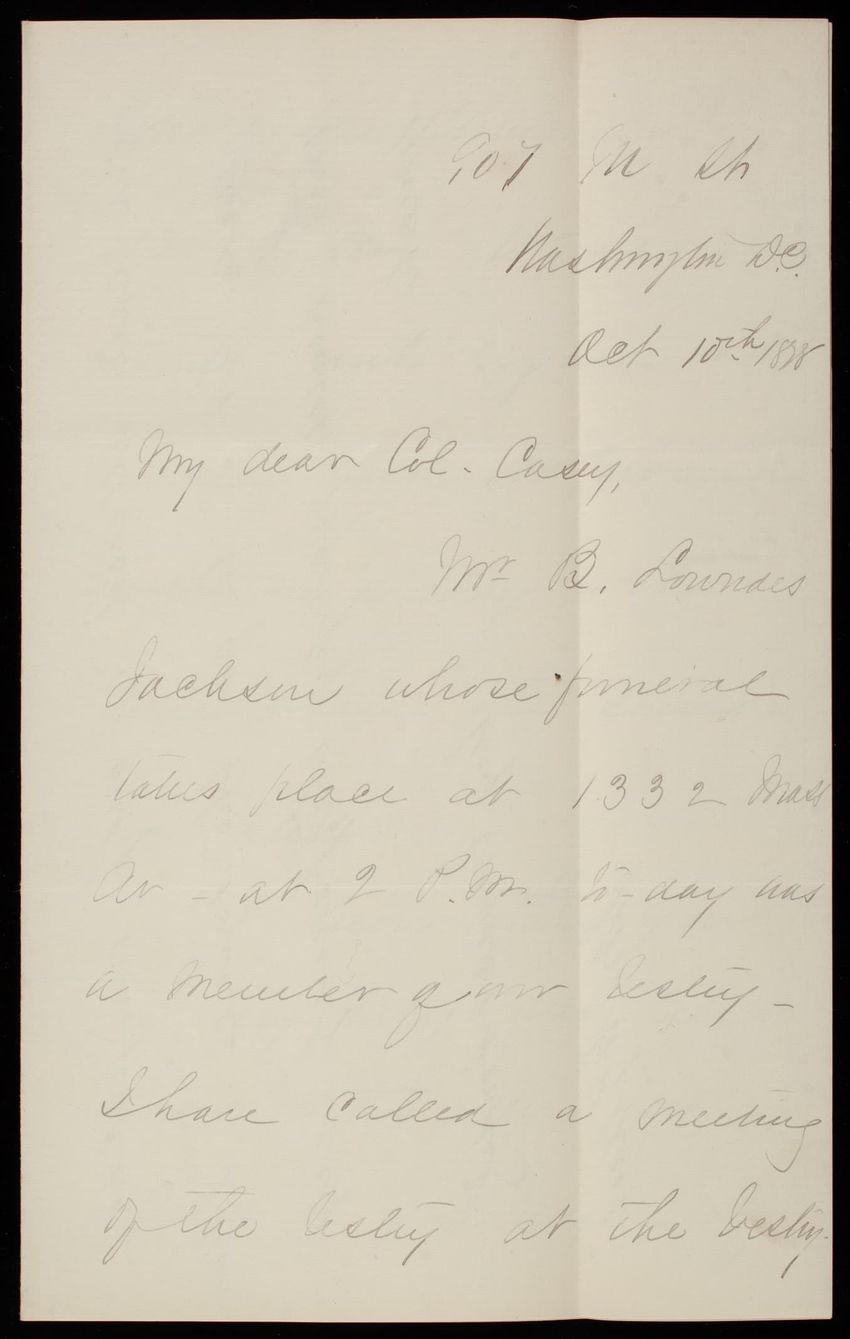 907 M St
Washington D.C.
Oct 10th 1888
My dear Col. Casey,
Mr B. Lowndes
Jackson whose funeral
takes place at 1332 Mass
Av - at 2 P.M. to-day was
a member of our Vestry -
I have called a meeting
of the Vestry at the Vestry-